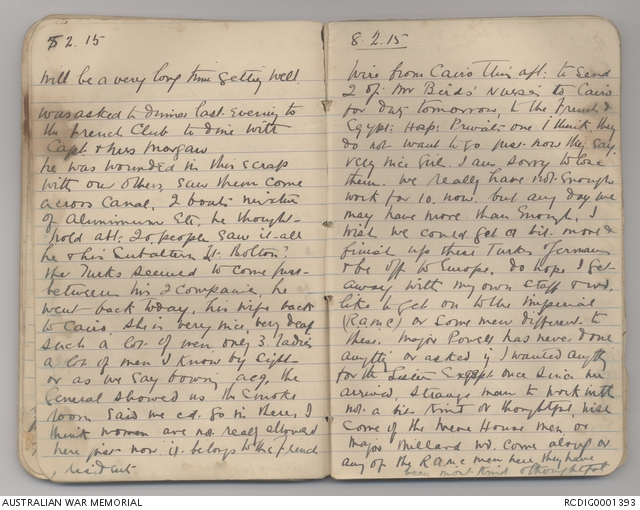 8 2. 15
will be a very long time getting well.
was asked to dinner last evening to
the French Club to dine with
Capt. & Mrs Morgan
he was wounded in this scrap
with our others, saw them come
across Canal, 2 boats
of Aluminium Etc, he thought
hold abt: 20 people saw it all
he & his Subaltern Lt. Bolton?
the Turks seemed to come just
between his 2 Companies, he
went back today, his wife back
to Cairo, she is very nice, very deaf
such a lot of men only 3 ladies
a lot of men I know by sight
or as we say bowing acq, the
General showed us the smoke
room said we cd. go in there, I
think women are not really allowed
here just now it belongs to the French
resident
8. 2. 15
Wire from Cairo this aft: to send
2 of Mr Birds' Nurses to Cairo
for duty tomorrow, to the French &
Egypt: Hosp: Private one I think, they
do not want to go just now they say.
very nice girls. I am sorry to lose
them. we really have not enough
work for 10, now. but any day we
may have more than enough, I
wish we could get a bit more &
finish up these Turks, Germans
& be off to Europe, do hope I get
away with my own staff & wd.
like to get on to the Imperial
(R.A.M.C) or some men different to
these. Major Powell has never done
anything or asked if I wanted anything
for the Sisters Except once since we
arrived, strange man to work with
not a bit kind or thoughtful, wish
some of the Mena House men, or
Major Millard wd. come along or
any of the R.A.M.C men here, they have
been most kind & thoughtful
AUSTRALIAN WAR MEMORIAL
RCDIG0001393